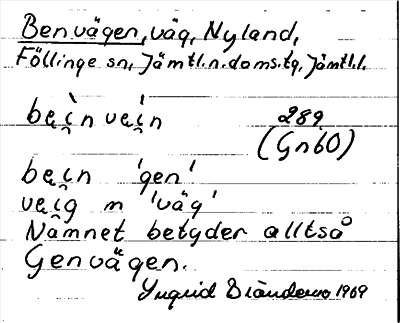 Benvägen, väg, Nyland,
Föllinge sn, Jämtl.n.doms.tg, Jämtl.l.
bei̯n vei̯n 289
(Gnb0)
bei̯n 'gen'
vei̯g m 'väg'
Namnet betyder alltså
Genvägen.
Yngrid 1969